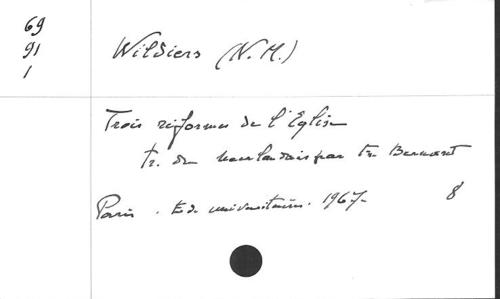 69
91
1
Wildiers (N. M.)
Trois réformes de l'Eglise
tr. du neerlandais par Fr. Bernaert
Paris. Ed. universitaires. 1967.
8